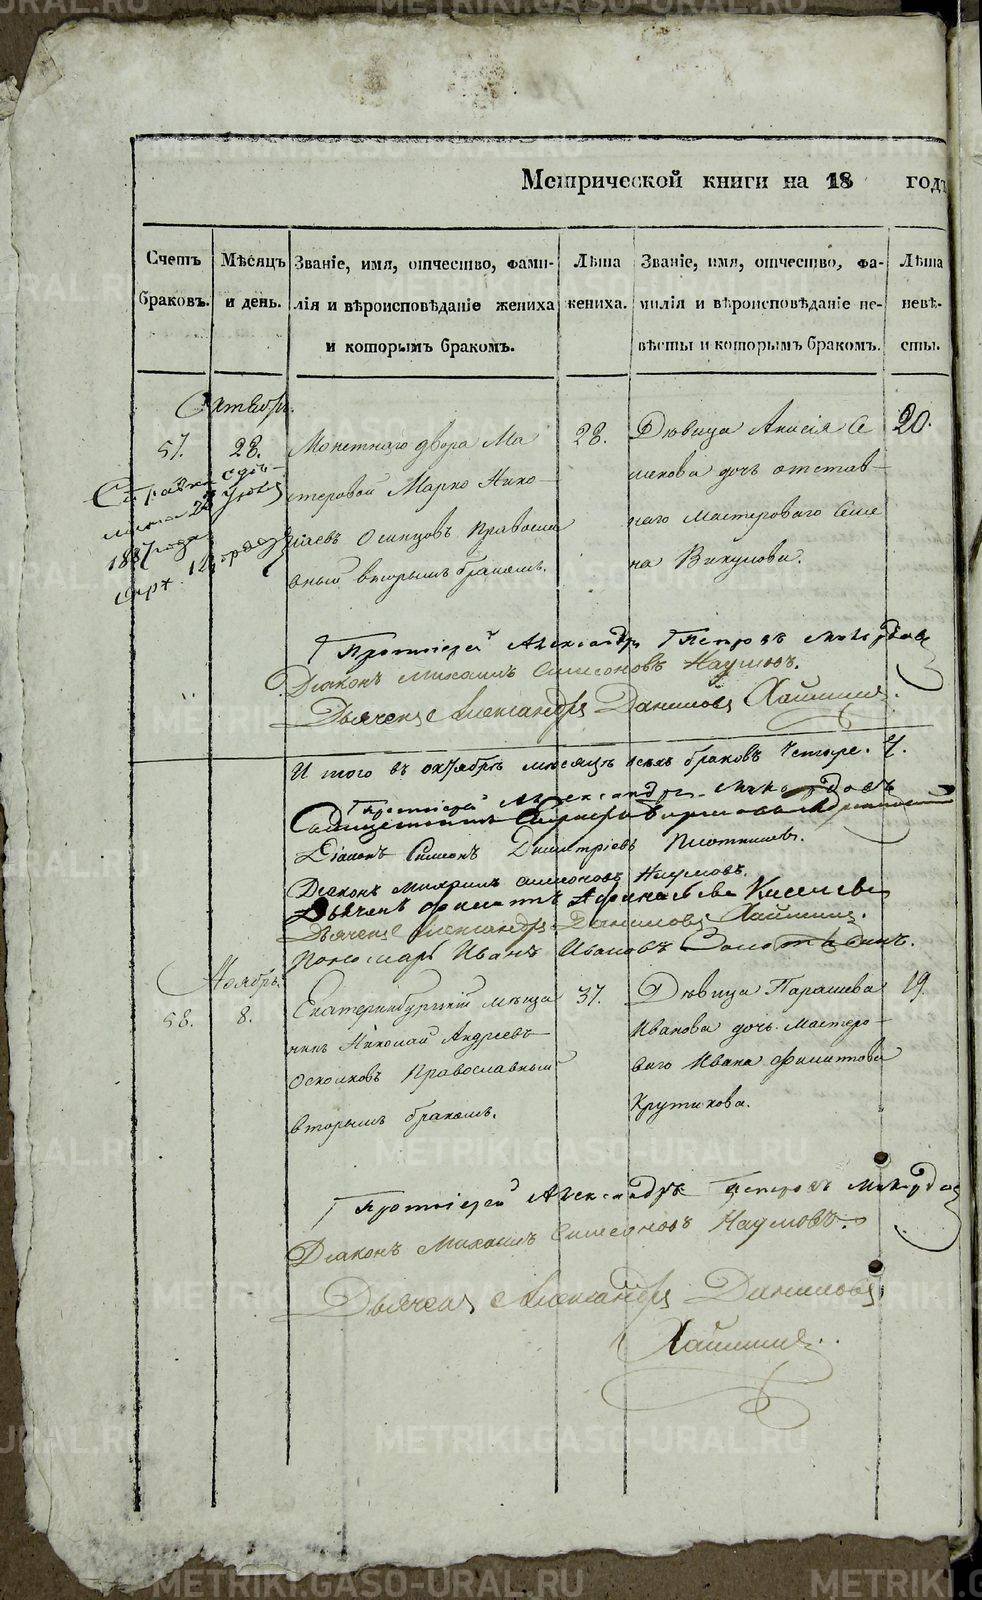 Метрической книги на 18 годъ
Счетъ браковъ.
Мѣсяцъ и день.
Званіе, имя, отчество, фами-
лія и вѣроисповѣданіе жениха
и которымъ бракомъ.
Лѣта
жениха.
Званіе, имя, отчество, фа-
милія и вѣроисповѣданіе не-
вѣсты и которымъ бракомъ.
Лѣта
невѣ-
сты.
Октябрь.
57. 28.
Монетнаго двора Ма
стеровой Марко Нико-
лаевъ Осинцовъ Правосла
вный вторымъ бракомъ.
28.
Дѣвица Анисія Се
менова дочь отстав-
наго Мастероваго Семе
на Викулова.
20.
Справка
1887 года
Протоіерей Александръ Петровъ
Діаконъ Михаилъ Симеоновъ Наумовъ.
Дьячекъ Александръ Даниловъ
И того въ октябрѣ мѣсяцѣ всѣхъ браковъ четыре. 4.
Протоіерей Александръ
Діаконъ Симеонъ Димитріевъ Плотниковъ.
Діаконъ Михаилъ Симеоновъ Наумовъ.
Дьячекъ Филиппъ Афанасьевъ Киселевъ
Дьячекъ Александръ Даниловъ
Пономарь Иванъ Ивановъ Золотавинъ.
Ноябрь.
58. 8.
Екатеринбургскій мѣща
нинъ Николай Андреевъ
Осколковъ Православный
вторымъ бракомъ.
37.
Дѣвица Парасковья
Иванова дочь Мастеро-
ваго Ивана Филиппова
Крутикова.
19.
Протоіерей Александръ Петровъ
Діаконъ Михаилъ Симеоновъ Наумовъ.
Дьячекъ Александръ Даниловъ
METRIKI.GASO-URAL.RU